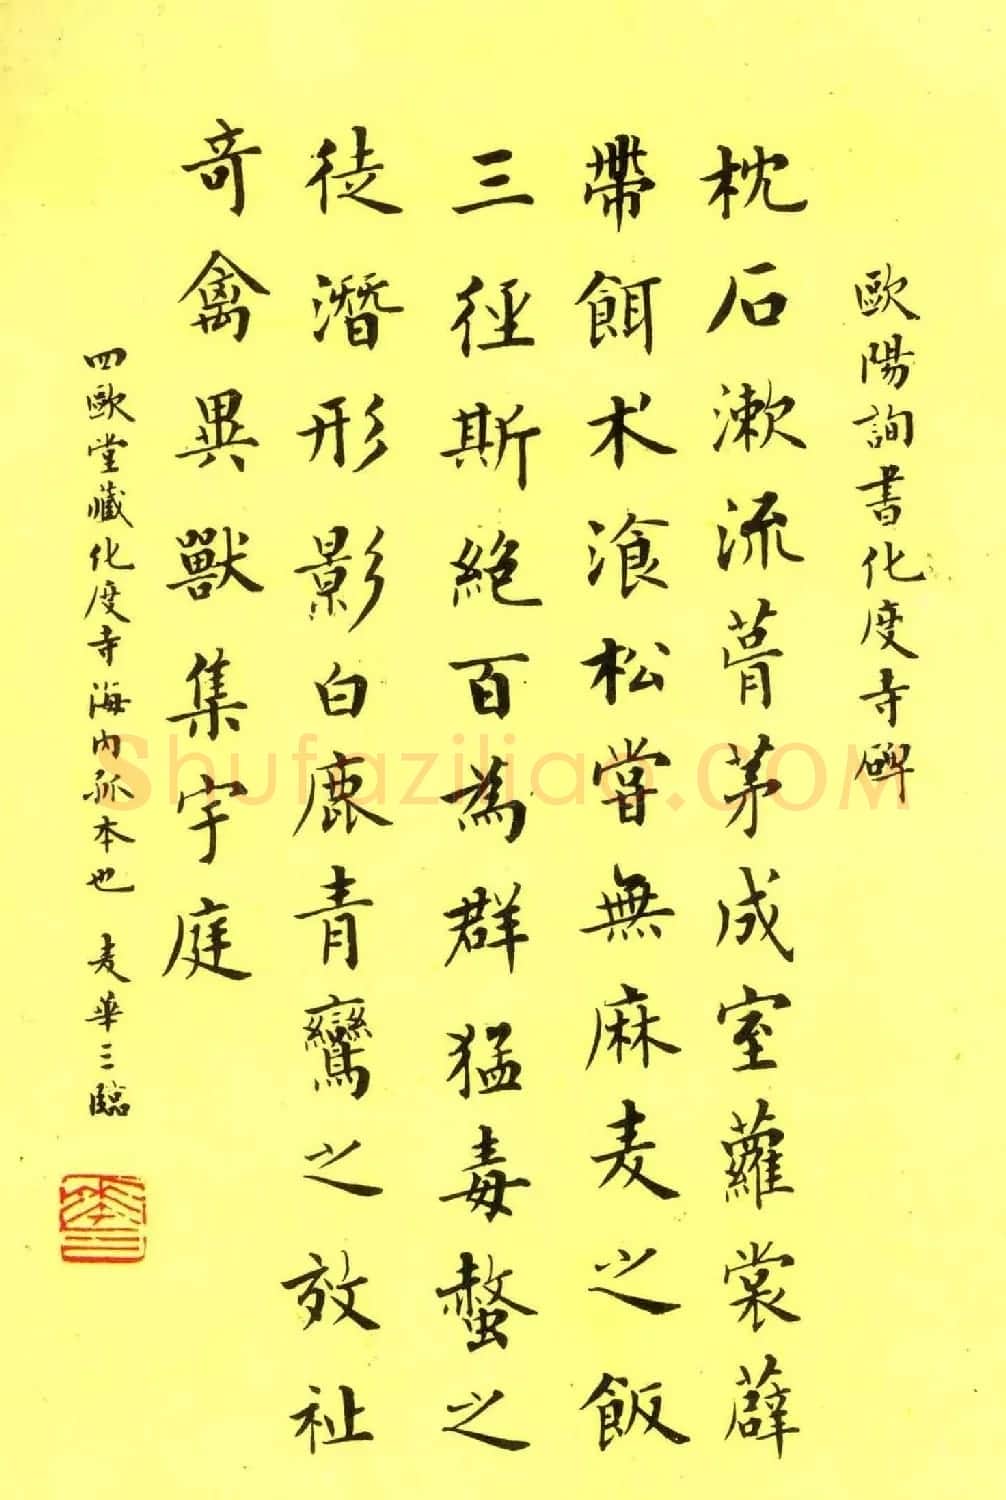 歐陽詢書化度寺碑
枕石漱流葺茅成室蘿裳薜
帶餌术飡松嘗無麻麦之飯
三徑斯絶百為群猛毒螫之
徒潛形影白鹿青鸞之效祉
奇禽異獸集宇庭
四歐堂藏化度寺海内孤本也 麦華三臨
華三
Shufaziliao.COM